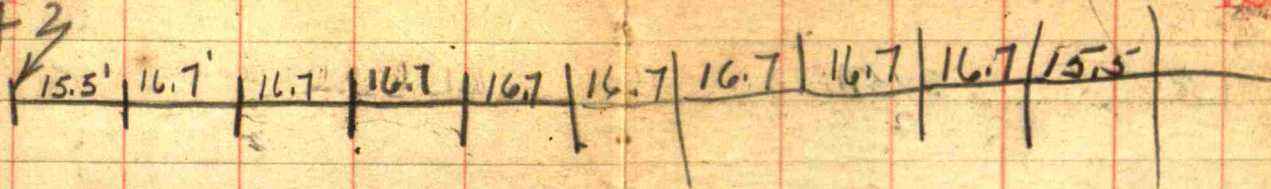 2
15.5' 16.7' 16.7 16.7 16.7 16.7 16.7 16.7 16.7 15.5